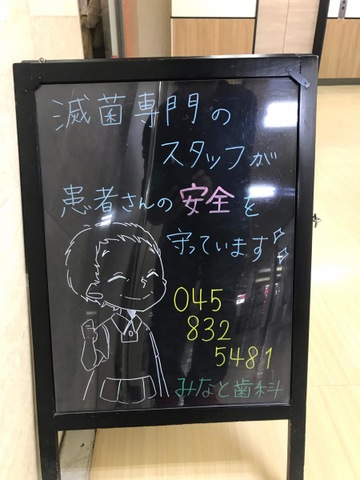 滅菌専門の
スタッフが
患者さんの安全を
守っています
045
832
5481
みなと歯科